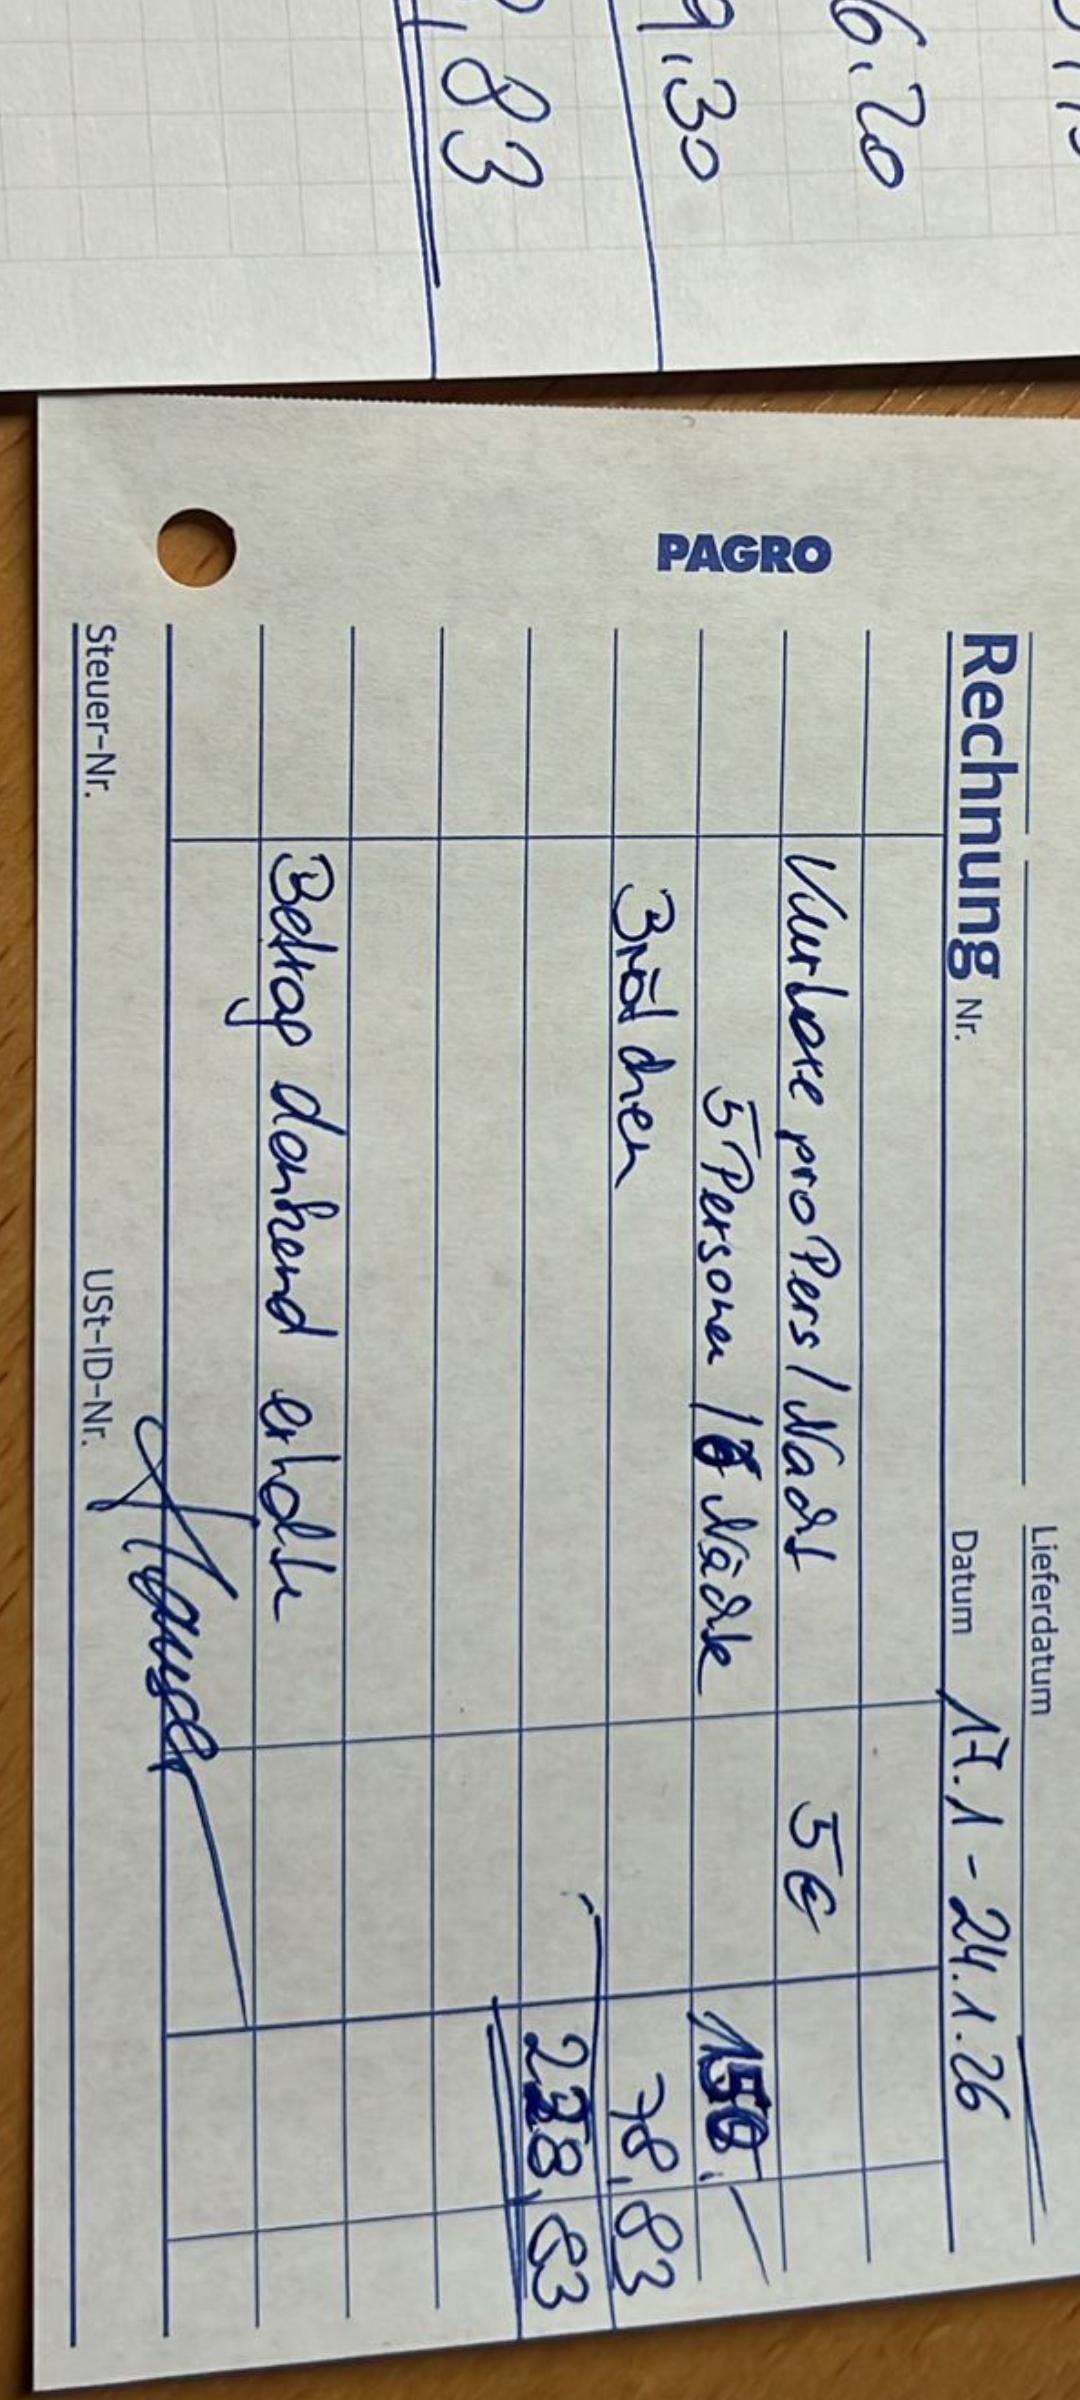 6,20
9,30
,83
PAGRO
Lieferdatum
Rechnung Nr.
Datum 17.1 - 24.1.26
Kurtaxe pro Pers / Nacht 5€
5 Personen / 6 Nächte 150.-
Brötchen 78,83
228,83
Betrag dankend erhalten
Steuer-Nr.
USt-ID-Nr.